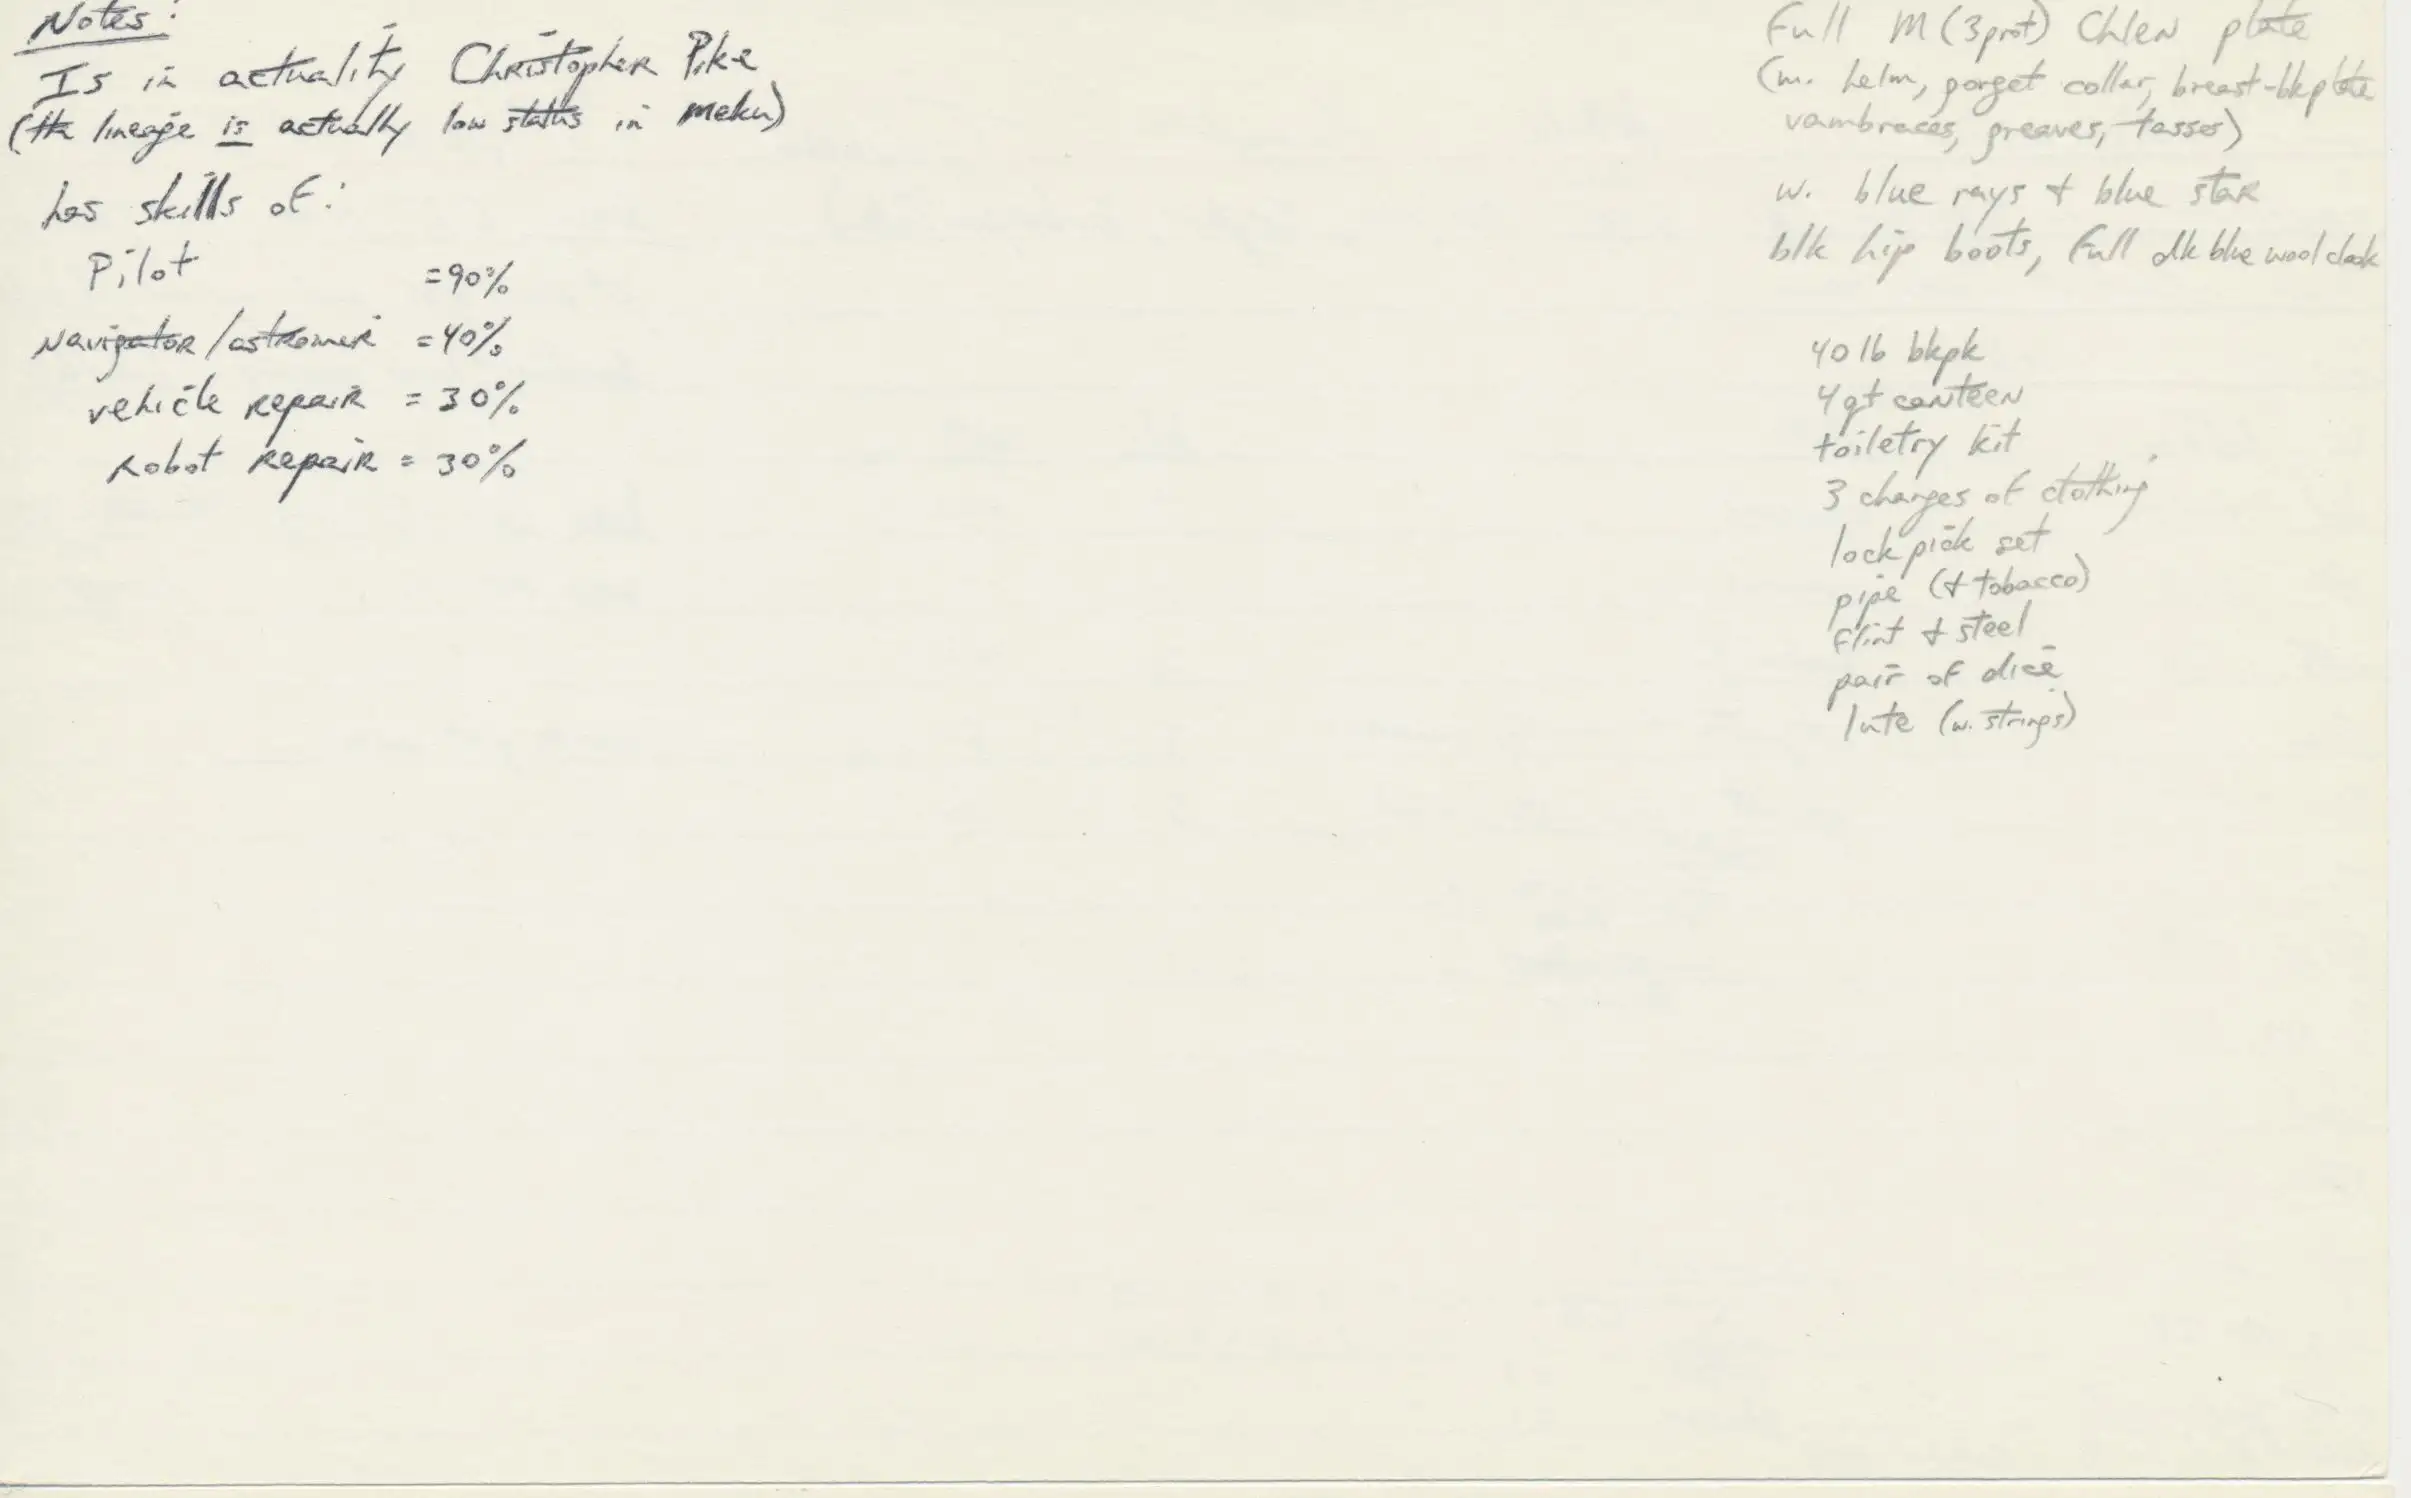 Notes:
Is in actuality Christopher Pike
(the lineage is actually low status in meku)
has skills of:
Pilot = 90%
Navigator/astromer = 40%
vehicle repair = 30%
Robot Repair = 30%
Full M (3prot) Chlen plate
(m. helm, gorget collar, breast-bkplate
vambraces, greaves, tasses)
w. blue rays + blue star
blk hip boots, full dk blue wool cloak
40 lb bkpk
4 qt canteen
toiletry kit
3 changes of clothing
lock pick set
pipe (+ tobacco)
flint + steel
pair of dice
lute (w. strings)